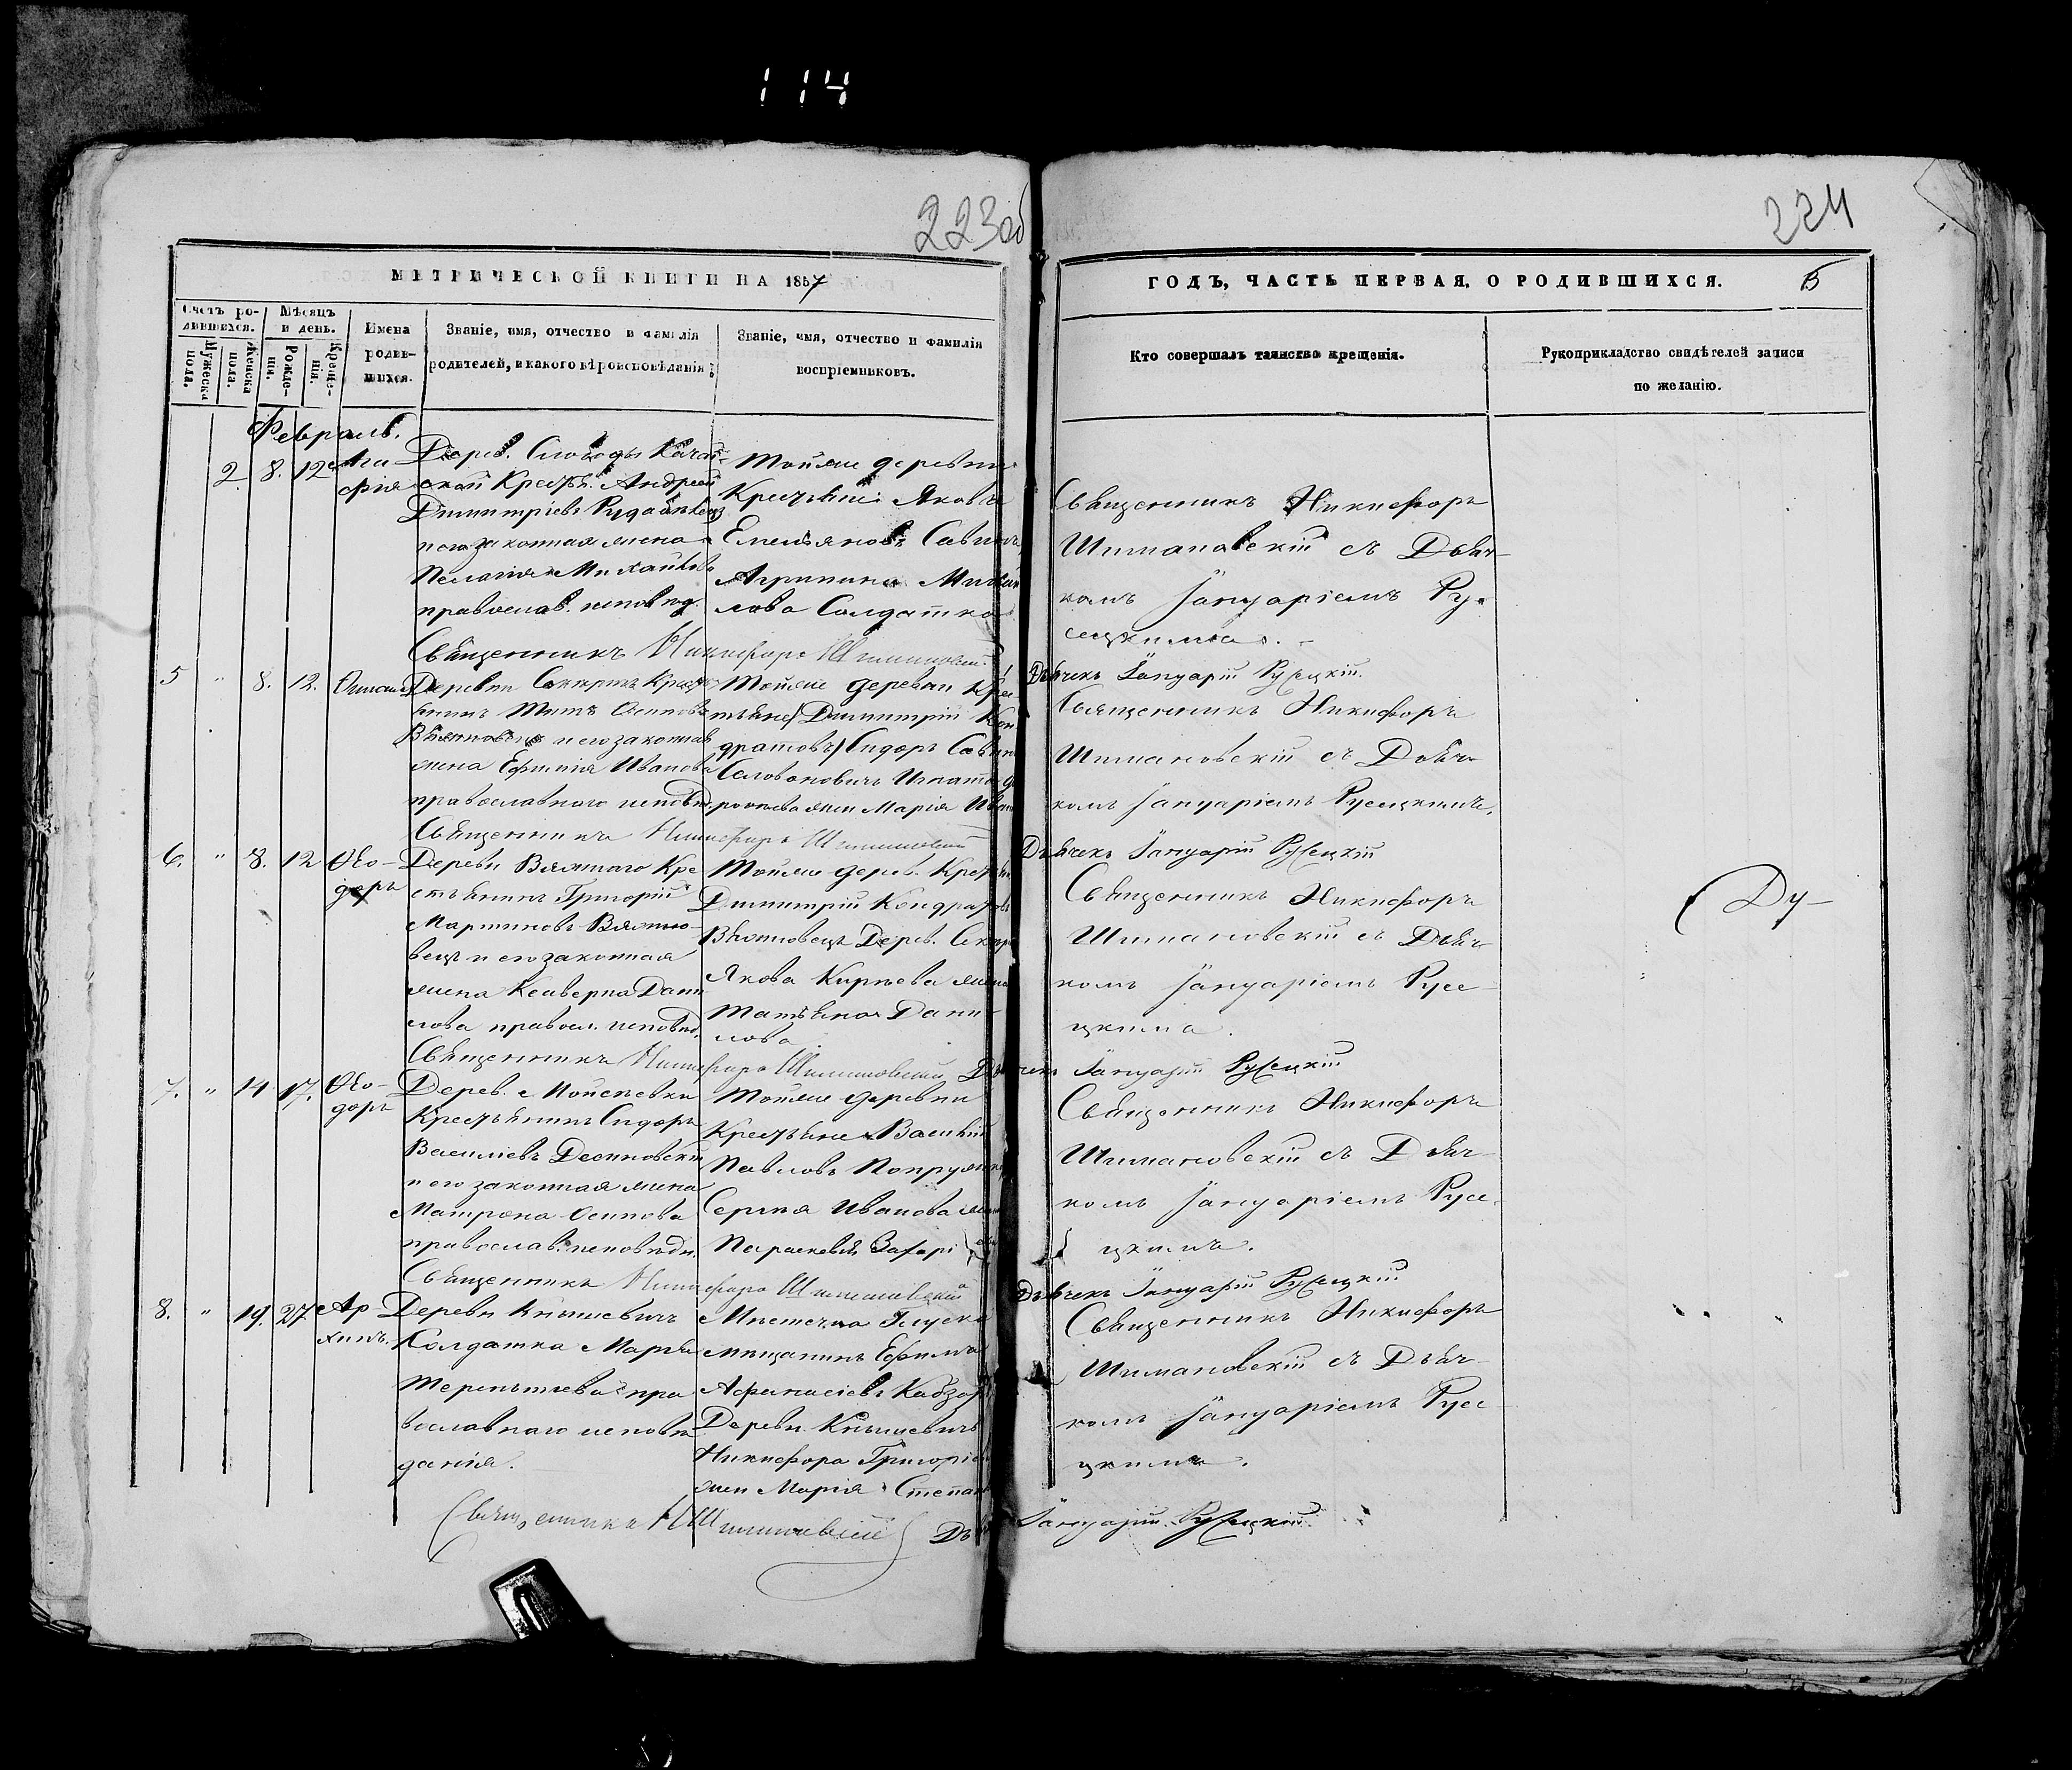 114
223об
224
МЕТРИЧЕСКОЙ КНИГИ НА 1857
ГОДЪ, ЧАСТЬ ПЕРВАЯ, О РОДИВШИХСЯ.
5
Счетъ ро-
дившихся.
Мужеска
пола.
Женска
пола.
Мѣсяцъ
и день.
Рожде-
нія.
Креще-
нія.
Имена
родив-
шихся.
Званіе, имя, отчество и фамилія
родителей, и какого вѣроисповѣданія
Званіе, имя, отчество и фамилія
воспріемниковъ.
Кто совершалъ таинство крещенія.
Рукоприкладство свидѣтелей записи
по желанію.
Февраль.
2. 8. 12 Ага-
фія
Дерев. Слободы
ской Крестьян. Андрей
Димитріевъ
и его законная жена
Пелагія Михайлов
православ. исповѣд.
Тойже деревни
Крестьяне Яковъ
Емельяновъ Савич
Агрипина Михай
лова Солдатка
Священникъ Никифоръ
Шимановскій съ Дьяч-
комъ Іануаріемъ Ру-
сецкимъ.
Священникъ Никифоръ Шимановскій
Дьячекъ Іануарій Русецкій.
5 " 8. 12. Онисим
Деревни Крестья
нинъ Титъ Осиповъ
и его законная
жена Ефимія Иванова
православнаго исповѣд.
Тойже деревни Крес
тьяне Димитрій Кон
дратовъ Сидоръ Савин
Марія Иван
Священникъ Никифоръ
Шимановскій съ Дьяч-
комъ Іануаріемъ Русецкимъ.
Священникъ Никифоръ Шимановскій
Дьячекъ Іануарій Русецкій
6. " 8. 12 Ѳео-
доръ
Деревн Вялтаго Кре
стьянинъ Григорій
Мартиновъ
вецъ и его законная
жена Ксаверна Дани
лова правосл. исповѣд.
Тойже дерев. Крестьян
Димитрій Кондратовъ
Дерев.
Якова Киреева жена
Татьяна Дани-
лова
Священникъ Никифоръ
Шимановскій съ Дьяч-
комъ Іануаріемъ Русе-
цкимъ.
Ду-
Священникъ Никифоръ Шимановскій
Дьячекъ Іануарій Русецкій
7. " 14 17. Ѳео-
доръ
Дерев. Мойсеевки
Крестьянинъ Сидоръ
Василіевъ
и его законная жена
Матрона Осипова
православ. исповѣдн.
Тойже деревни
Крестьяне Василій
Павловъ
Сергія Иванова жен
Параскевія Захарі
Священникъ Никифоръ
Шимановскій съ Дьяч-
комъ Іануаріемъ Русе-
цкимъ.
Священникъ Никифоръ Шимановскій
Дьячекъ Іануарій Русецкій
8. " 19. 27. Ар-
хипъ.
Деревн Кнышевичъ
Солдатка Марѳа
Терентіева пра
вославнаго исповѣ
данія.
Мѣстечка Глуска
мѣщанинъ Ефимъ
Афанасіевъ
Деревн Кнышевичъ
Никифора Григорі
жен Марія Степан
Священникъ Никифоръ
Шимановскій съ Дьяч-
комъ Іануаріемъ Русе-
цкимъ.
Священникъ Н Шимановскій
Дьяч Іануарій Русецкій